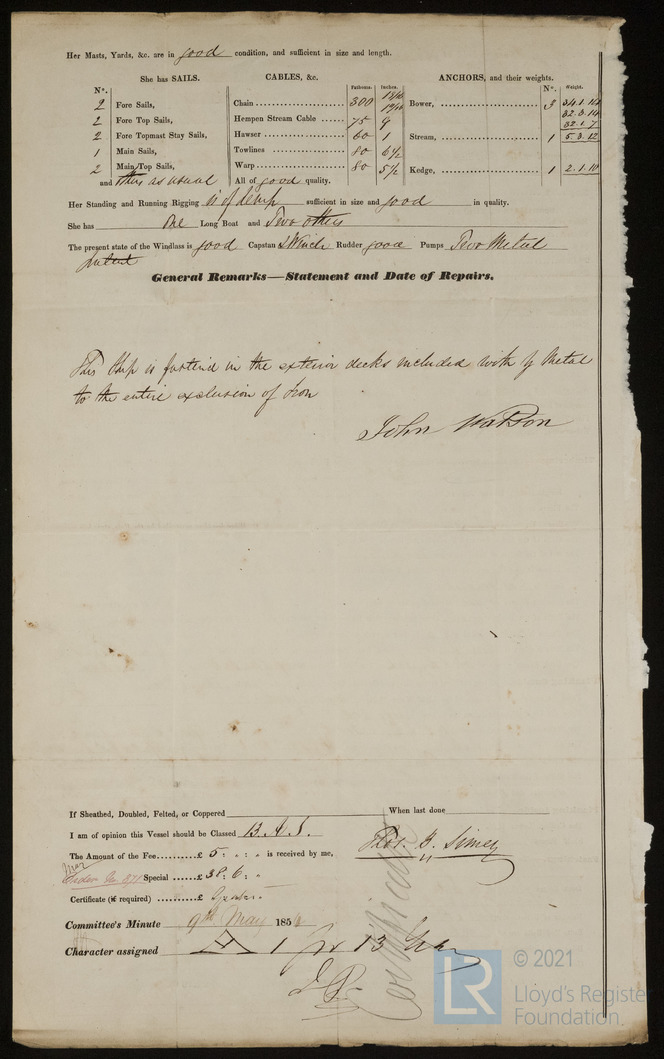 Her Masts, Yards, &c. are in good condition, and sufficient in size and length.
She has SAILS. CABLES, &c. ANCHORS, and their weights.
N°. Fathoms. Inches. N°. Weight.
2 Fore Sails, Chain 300 Bower, 3 34.1.14
2 Fore Top Sails, Hempen Stream Cable 75 9 32.3.14
2 Fore Topmast Stay Sails, Hawser 60 1 Stream, 1 5.3.12
1 Main Sails, Towlines 80 6½
2 Main Top Sails, Warp 80 5½ Kedge, 1 2.1.10
and others as usual All of good quality.
Her Standing and Running Rigging is of Hemp sufficient in size and good in quality.
She has One Long Boat and Two others
The present state of the Windlass is good Capstan & Winch Rudder good Pumps Two Metal
patent
General Remarks—Statement and Date of Repairs.
This Ship is fastend in the exterior decks included with y Metal
to the entire exclusion of Iron
John Watson
If Sheathed, Doubled, Felted, or Coppered When last done
I am of opinion this Vessel should be Classed 13. A. 1.
The Amount of the Fee £ 5 : " : " is received by me,
Thos. Simey
Special £ 38 : 6 : "
Certificate (if required) £
Committee's Minute 9th May 185
Character assigned A 1 for 13 Years
© 2021
LR Lloyd's Register
Foundation